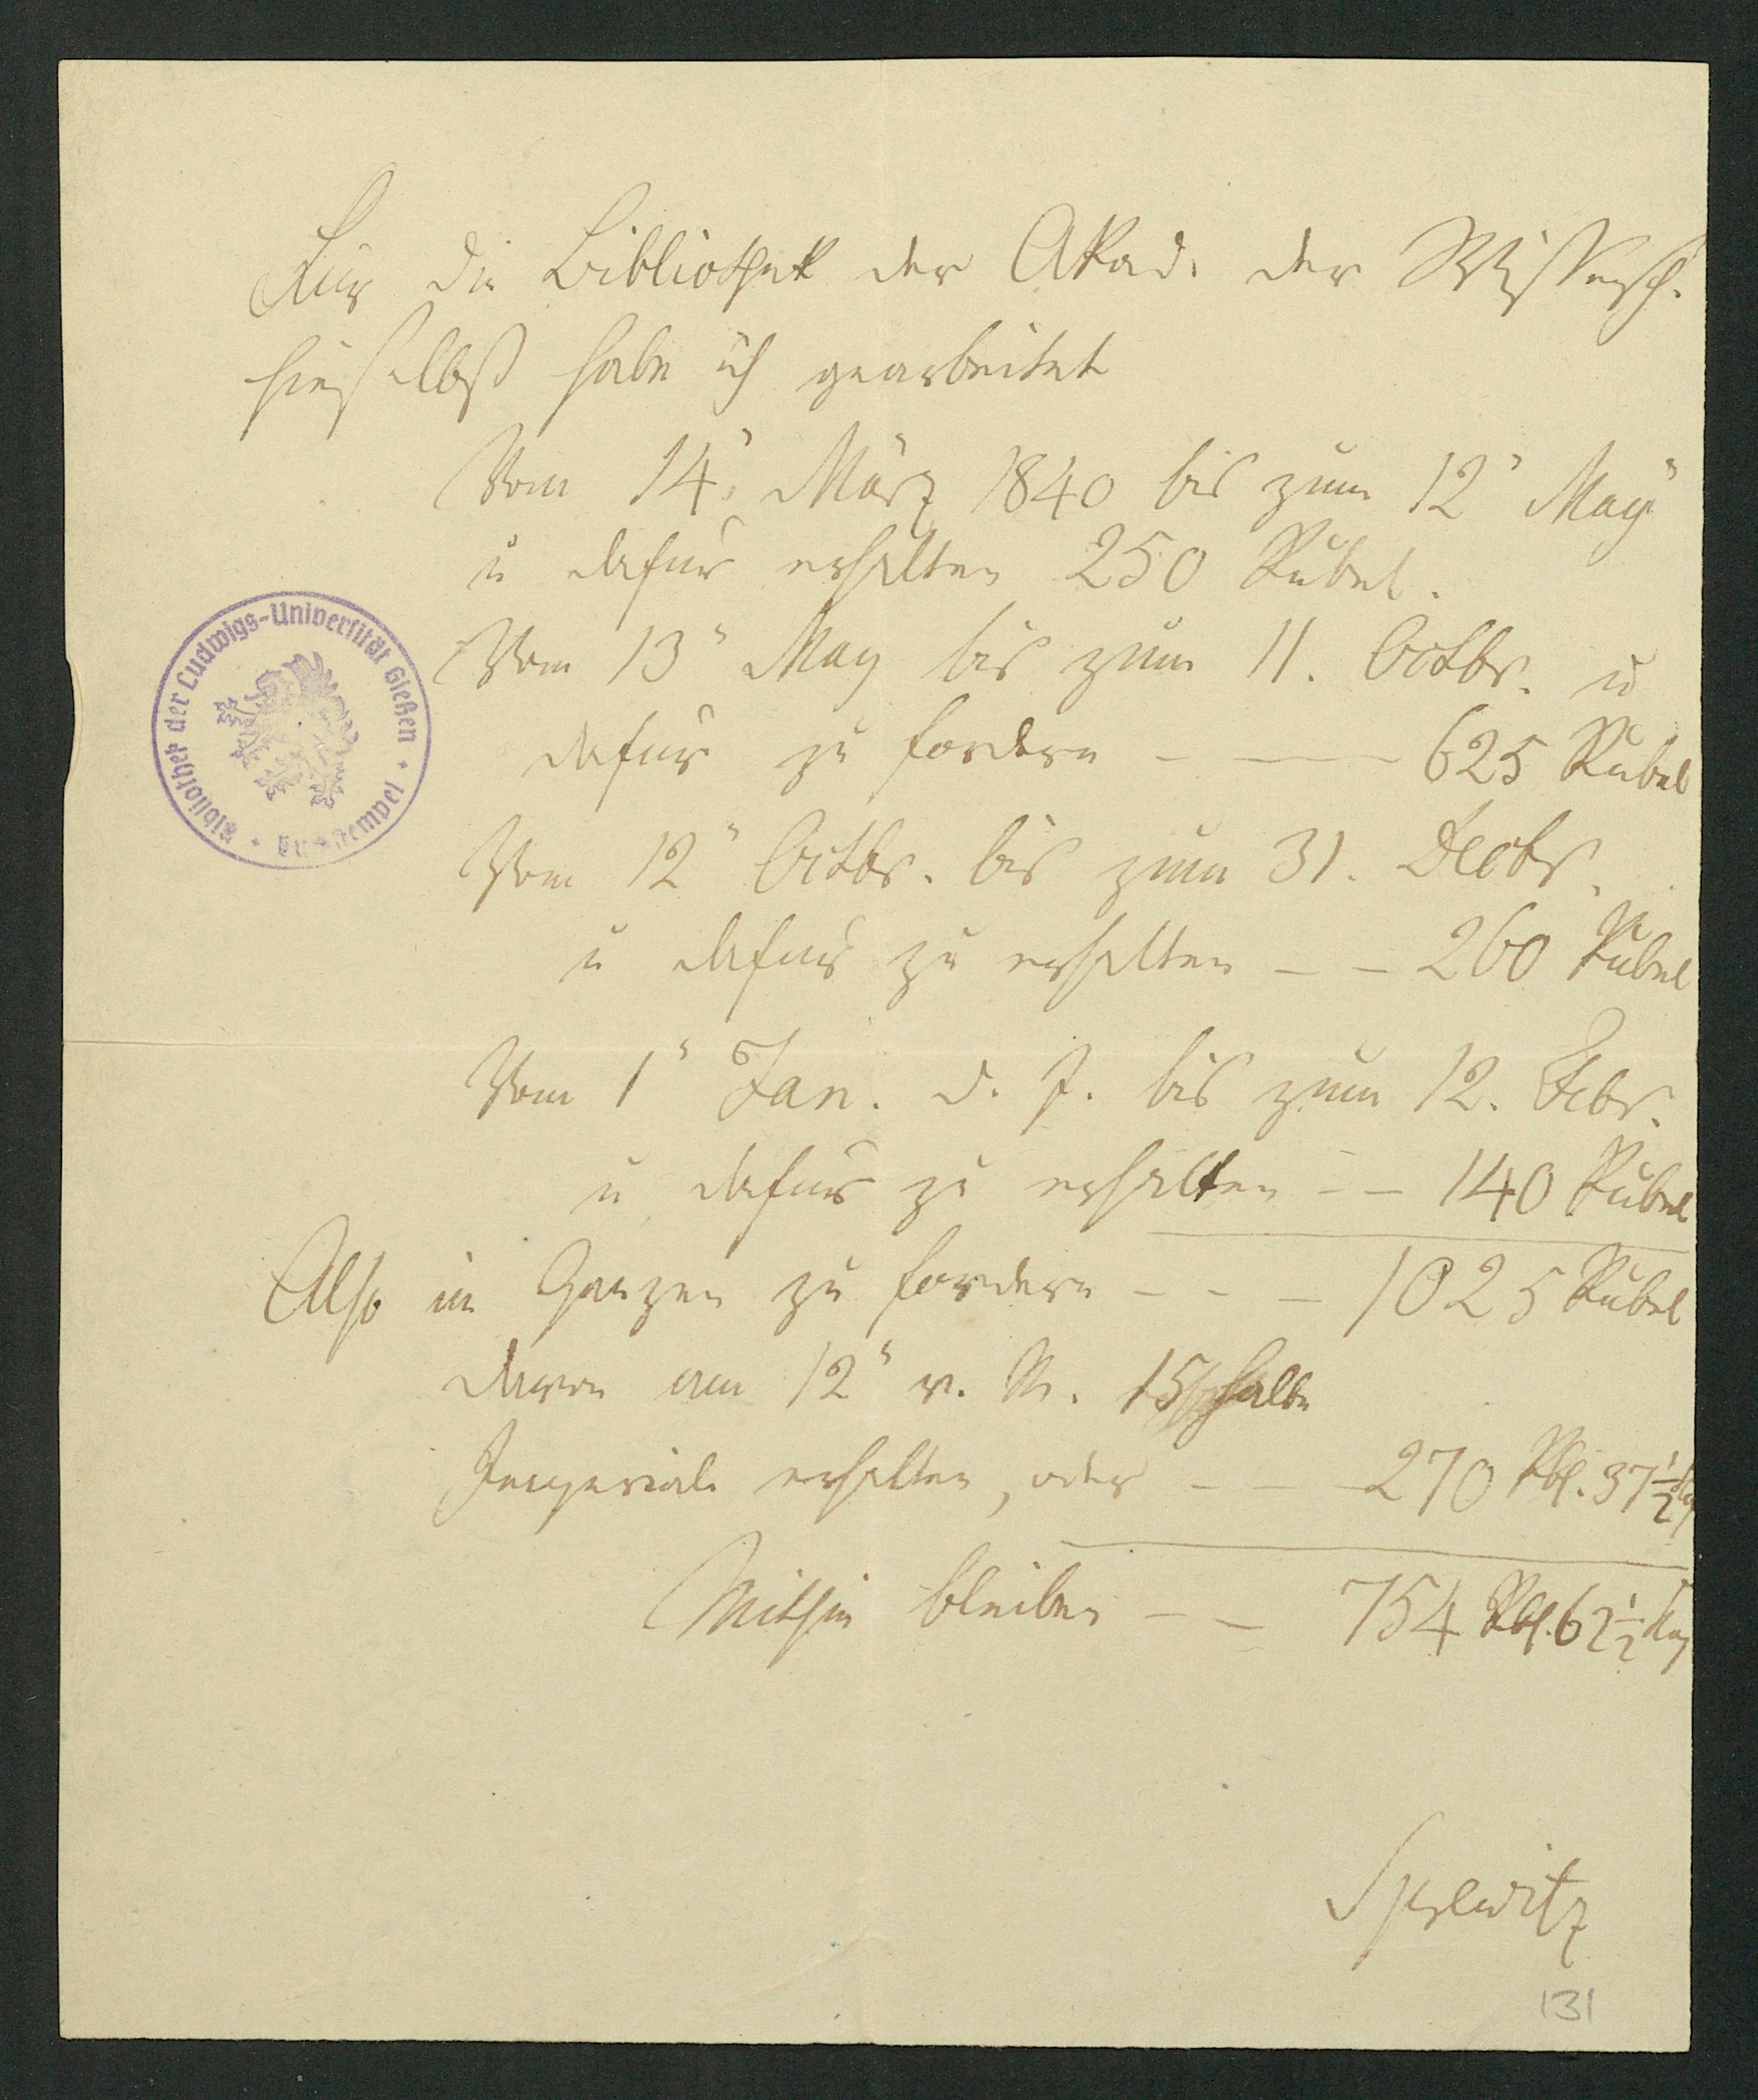 Für die Bibliothek der Akad. der Wissensch.
hieselbst habe ich gearbeitet
Vom 14n März 1840 bis zum 12n May
u dafür erhalten 250 Rubel.
Vom 13n May bis zum 11. Octbr. u
dafür zu fordern - — 625 Rubel
Vom 12n Octbr. bis zum 31. Decbr.
u dafür zu erhalten - - 260 Rubel
Vom 1n Jan. d. J. bis zum 12. Febr.
u dafür zu erhalten - - 140 Rubel
Also im Ganzen zu fordern - - - 1025 Rubel
davon am 12n v. M. 15 halbe
Imperiale erhalten, oder - - - 270 Rbl. 37½ Kop
Mithin bleiben - - 754 Rbl. 62½ Kop
Bibliothek der Ludwigs-Universität Gießen
131